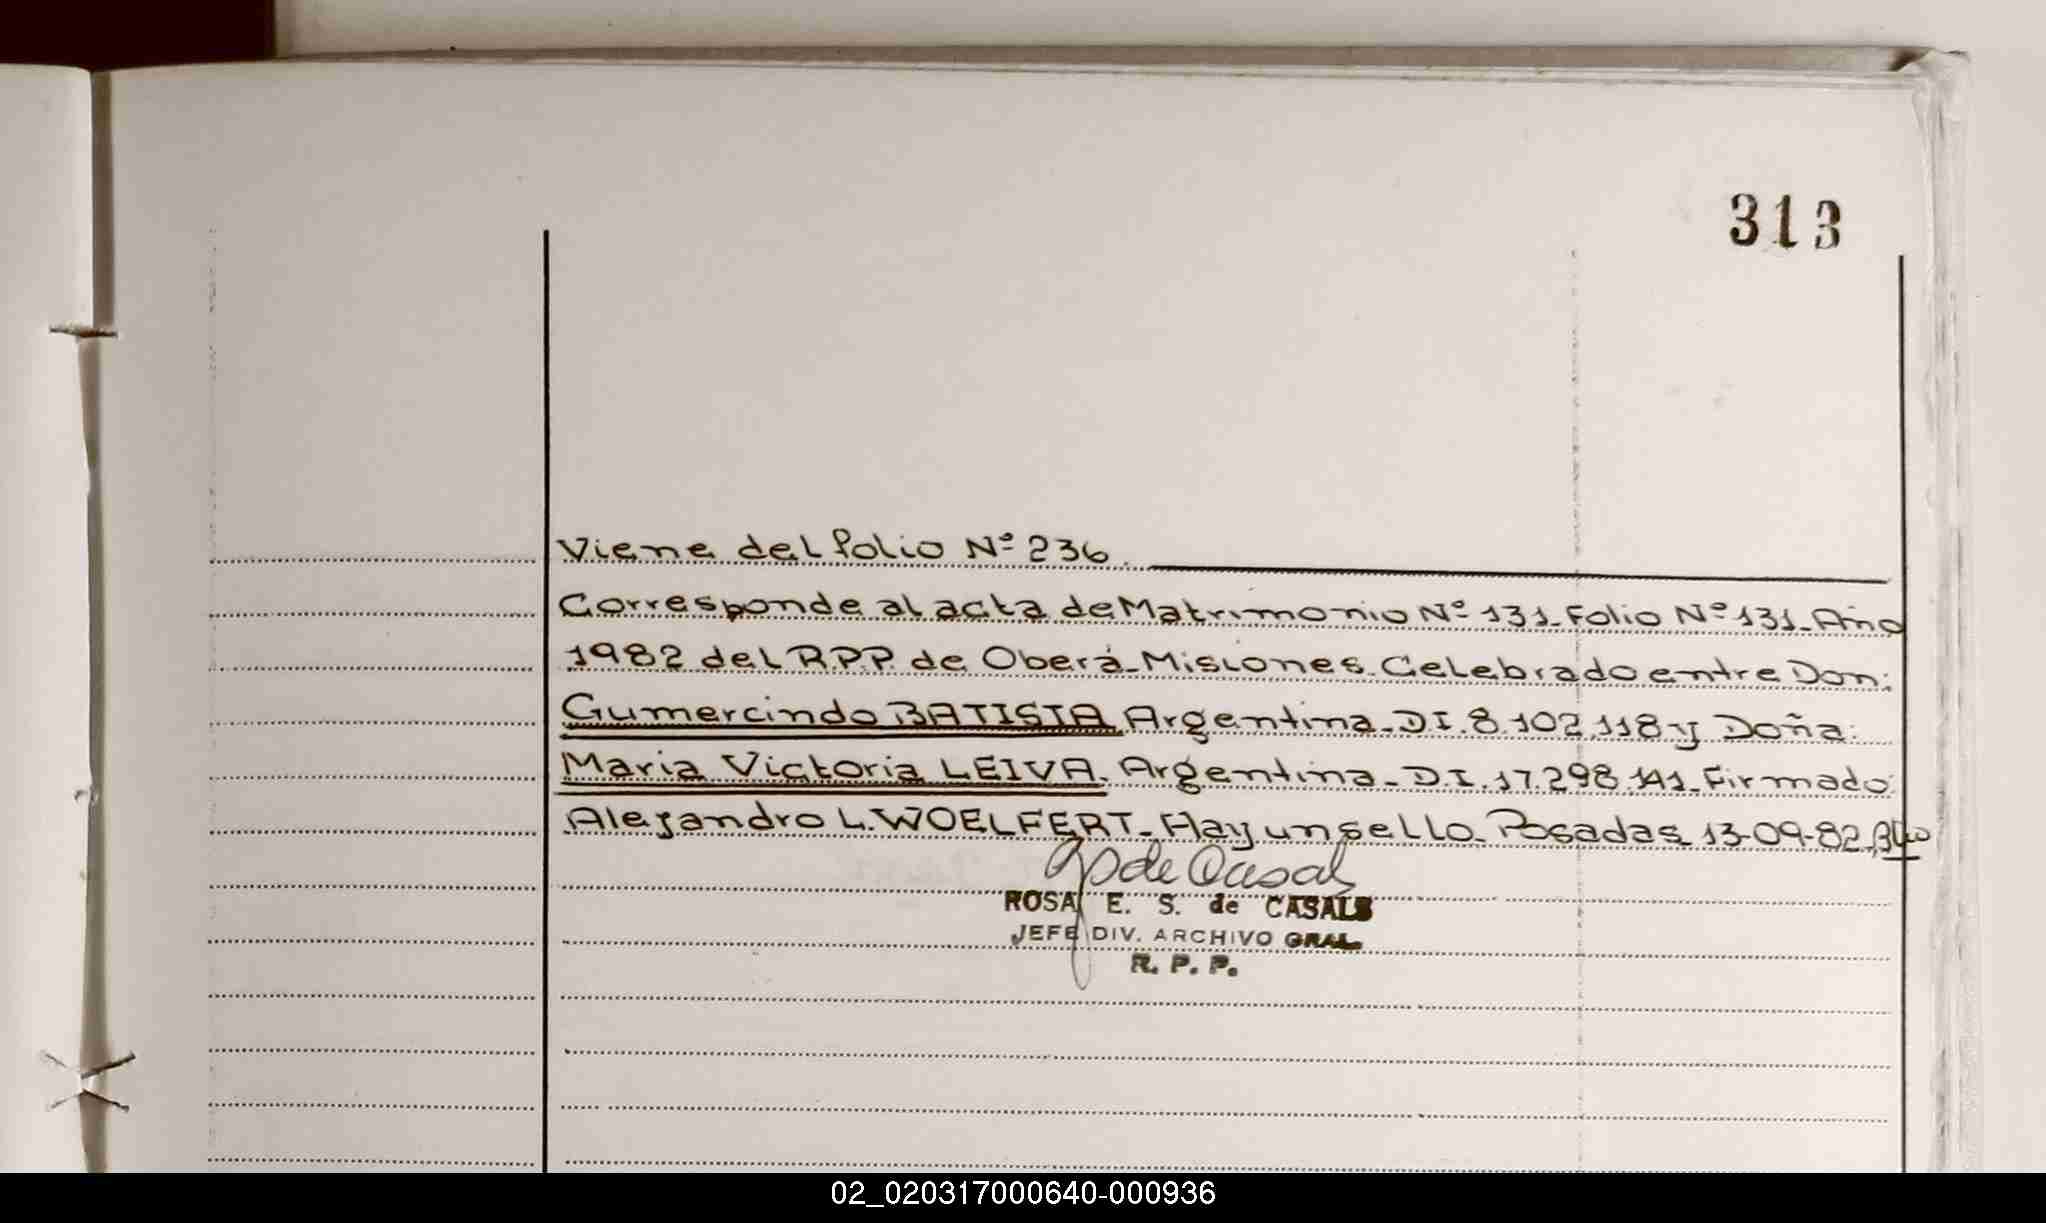 313
Viene del folio Nº 236.
Corresponde al acta de Matrimonio Nº 131_Folio Nº 131_Año
1982 del R.P.P. de Oberá_Misiones. Celebrado entre Don:
Gumercindo BATISTA. Argentina_D.I. 8.102.118 y Doña:
Maria Victoria LEIVA. Argentina_D.I. 17.298.141_Firmado:
Alejandro L. WOELFERT_Hay un sello_Posadas 13-09-82.
de Casals
ROSA E. S. de CASALS
JEFE DIV. ARCHIVO GRAL.
R. P. P.
02_020317000640-000936